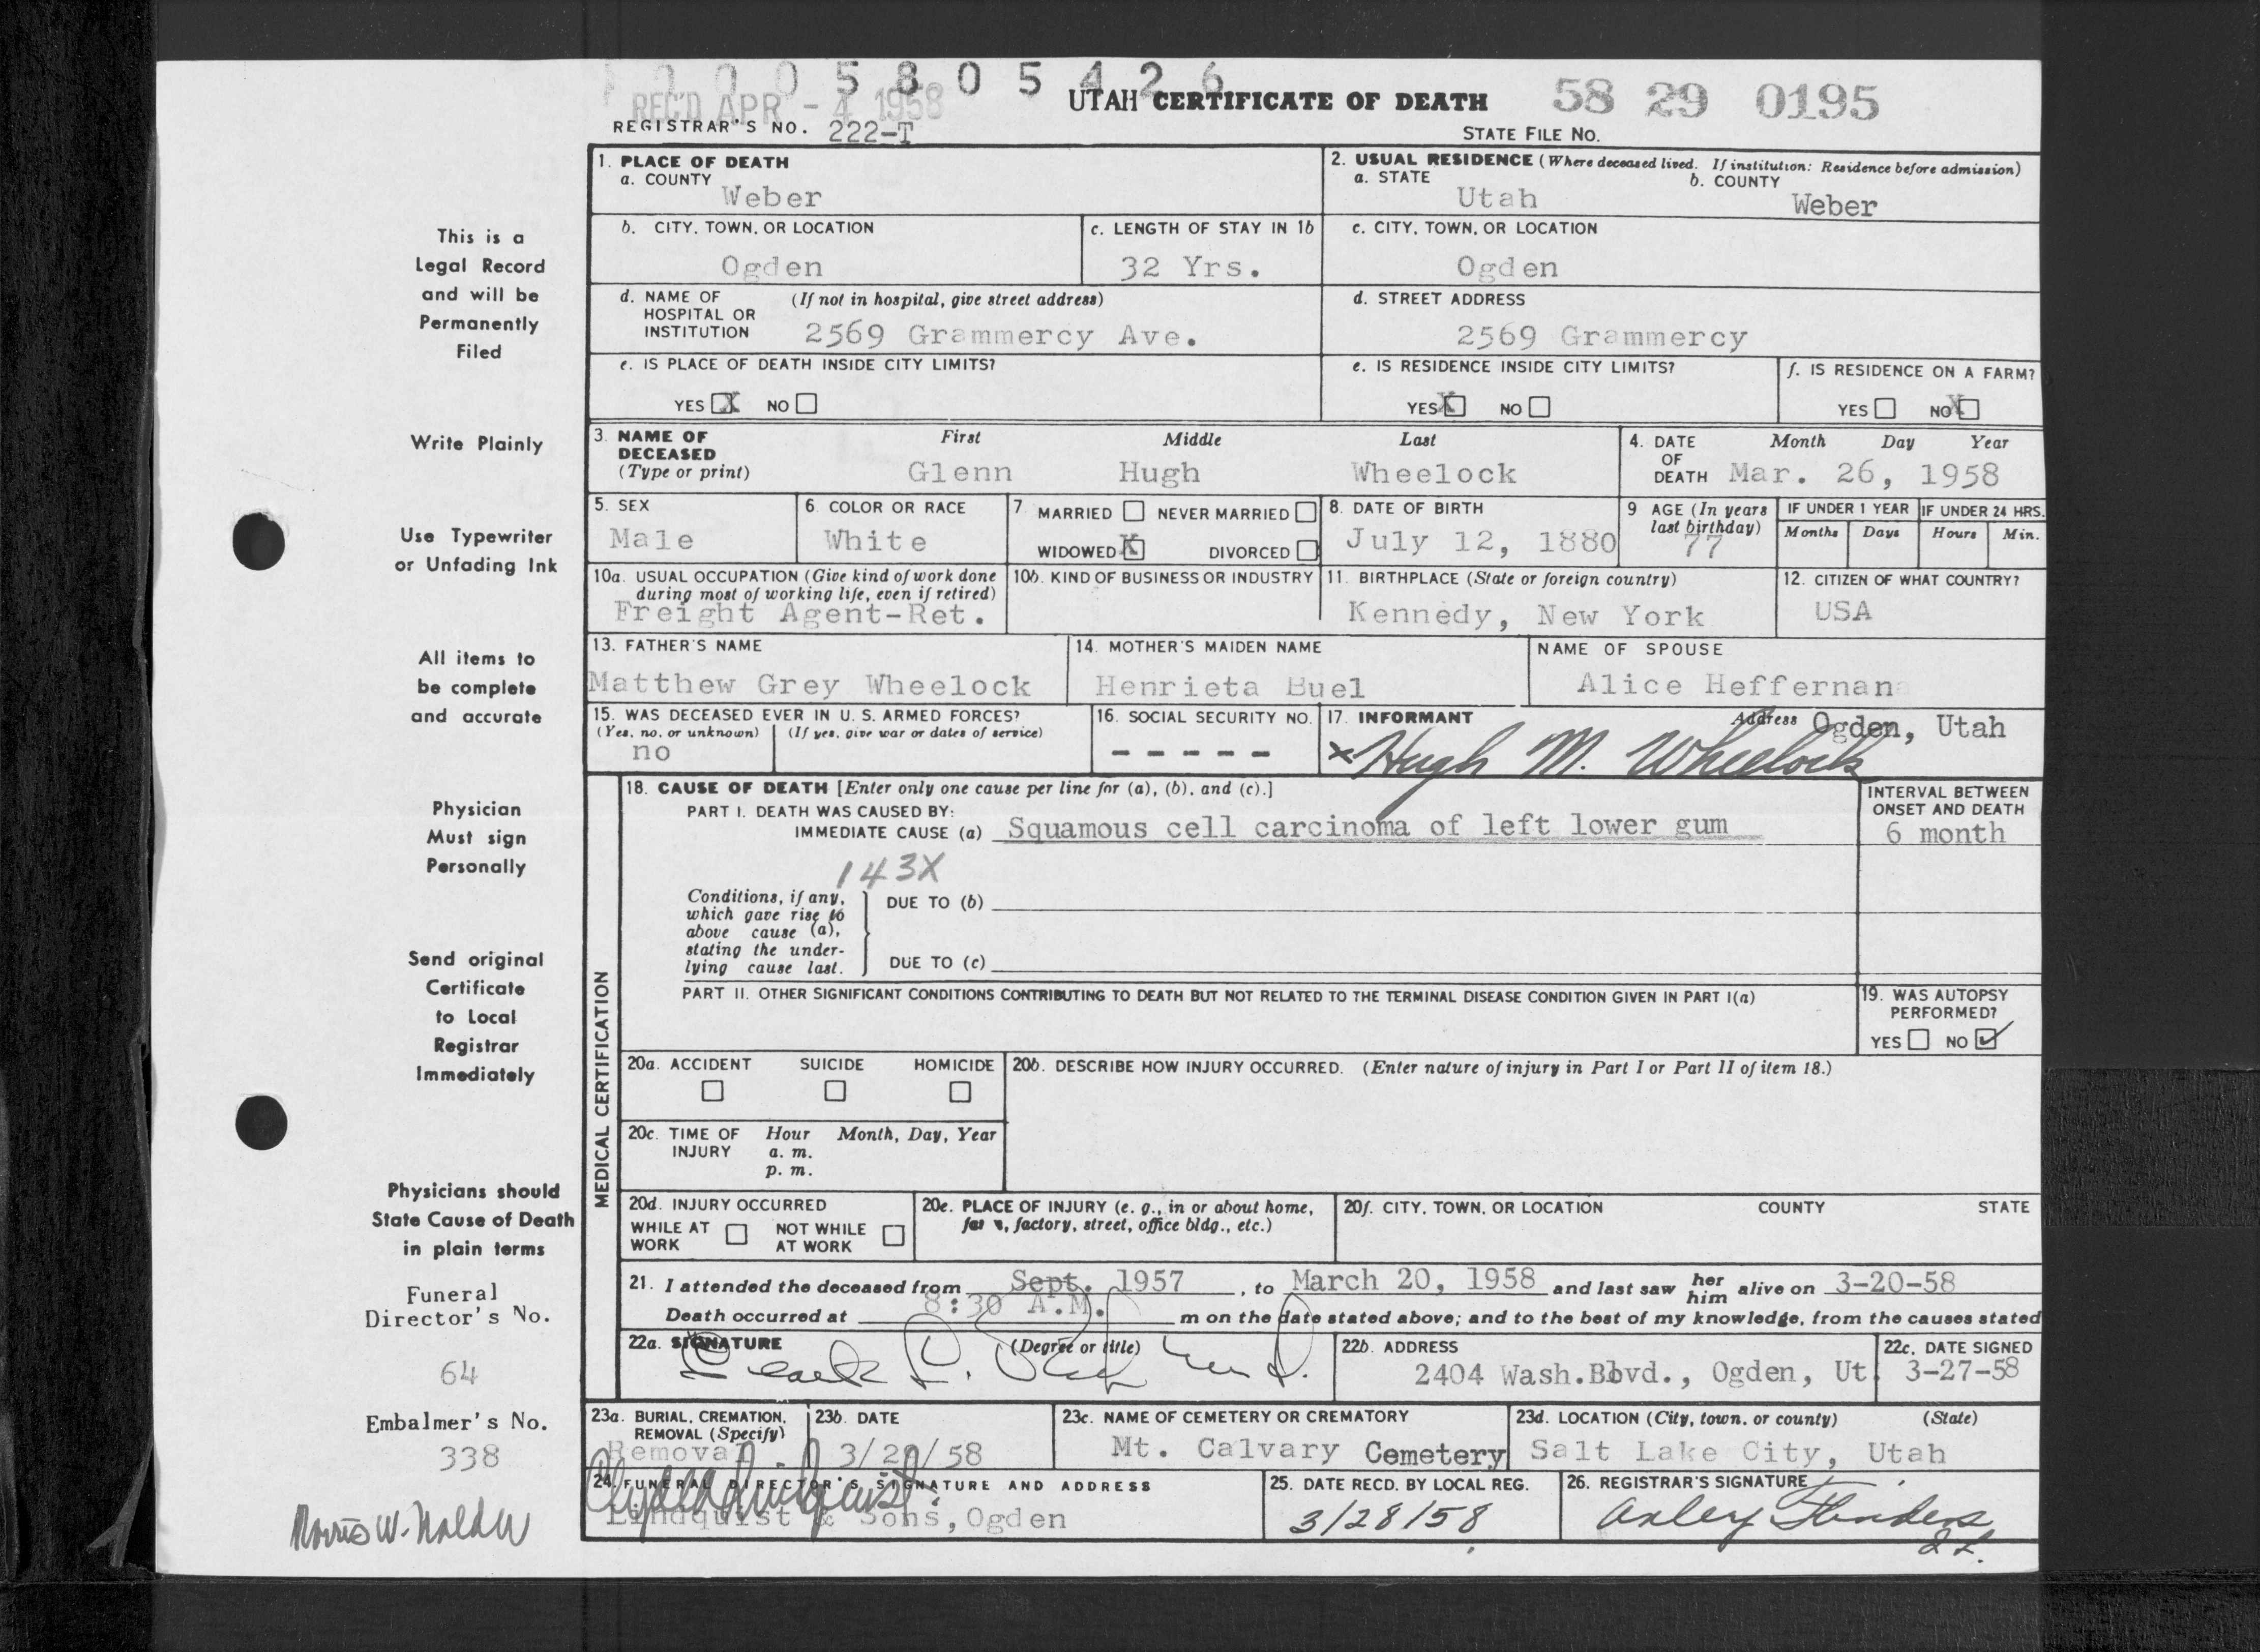 1 0 0 0 5 8 0 5 4 2 6
REC'D APR - 4 1958
UTAH CERTIFICATE OF DEATH
58 29 0195
REGISTRAR'S NO. 222-T
STATE FILE NO.
This is a
Legal Record
and will be
Permanently
Filed
Write Plainly
Use Typewriter
or Unfading Ink
All items to
be complete
and accurate
Physician
Must sign
Personally
Send original
Certificate
to Local
Registrar
Immediately
Physicians should
State Cause of Death
in plain terms
Funeral
Director's No.
64
Embalmer's No.
338
1. PLACE OF DEATH
a. COUNTY
Weber
2. USUAL RESIDENCE (Where deceased lived. If institution: Residence before admission)
a. STATE
Utah
b. COUNTY
Weber
b. CITY, TOWN, OR LOCATION
Ogden
c. LENGTH OF STAY IN 1b
32 Yrs.
c. CITY, TOWN, OR LOCATION
Ogden
d. NAME OF (If not in hospital, give street address)
HOSPITAL OR
INSTITUTION 2569 Grammercy Ave.
d. STREET ADDRESS
2569 Grammercy
e. IS PLACE OF DEATH INSIDE CITY LIMITS?
YES X NO
e. IS RESIDENCE INSIDE CITY LIMITS?
YES X NO
f. IS RESIDENCE ON A FARM?
YES NO X
3. NAME OF DECEASED
(Type or print)
First Middle Last
Glenn Hugh Wheelock
4. DATE OF DEATH
Month Day Year
Mar. 26, 1958
5. SEX
Male
6. COLOR OR RACE
White
7. MARRIED NEVER MARRIED
WIDOWED X DIVORCED
8. DATE OF BIRTH
July 12, 1880
9 AGE (In years
last birthday)
77
IF UNDER 1 YEAR
Months Days
IF UNDER 24 HRS.
Hours Min.
10a. USUAL OCCUPATION (Give kind of work done
during most of working life, even if retired)
Freight Agent-Ret.
10b. KIND OF BUSINESS OR INDUSTRY
11. BIRTHPLACE (State or foreign country)
Kennedy, New York
12. CITIZEN OF WHAT COUNTRY?
USA
13. FATHER'S NAME
Matthew Grey Wheelock
14. MOTHER'S MAIDEN NAME
Henrieta Buel
NAME OF SPOUSE
Alice Heffernan
15. WAS DECEASED EVER IN U. S. ARMED FORCES?
(Yes, no, or unknown) (If yes, give war or dates of service)
no
16. SOCIAL SECURITY NO.
- - - - -
17. INFORMANT Address Ogden, Utah
x Hugh M. Wheelock
MEDICAL CERTIFICATION
18. CAUSE OF DEATH [Enter only one cause per line for (a), (b), and (c).]
PART I. DEATH WAS CAUSED BY:
IMMEDIATE CAUSE (a) Squamous cell carcinoma of left lower gum
INTERVAL BETWEEN
ONSET AND DEATH
6 month
143X
Conditions, if any,
which gave rise to
above cause (a),
stating the under-
lying cause last.
DUE TO (b)
DUE TO (c)
PART II. OTHER SIGNIFICANT CONDITIONS CONTRIBUTING TO DEATH BUT NOT RELATED TO THE TERMINAL DISEASE CONDITION GIVEN IN PART I(a)
19. WAS AUTOPSY
PERFORMED?
YES NO ✓
20a. ACCIDENT SUICIDE HOMICIDE
20b. DESCRIBE HOW INJURY OCCURRED. (Enter nature of injury in Part I or Part II of item 18.)
20c. TIME OF INJURY
Hour Month, Day, Year
a. m.
p. m.
20d. INJURY OCCURRED
WHILE AT WORK NOT WHILE AT WORK
20e. PLACE OF INJURY (e. g., in or about home,
farm, factory, street, office bldg., etc.)
20f. CITY, TOWN, OR LOCATION COUNTY STATE
21. I attended the deceased from Sept. 1957, to March 20, 1958 and last saw her him alive on 3-20-58
Death occurred at 8:30 A.M. m on the date stated above; and to the best of my knowledge, from the causes stated
22a. SIGNATURE (Degree or title)
22b. ADDRESS
2404 Wash.Blvd., Ogden, Ut.
22c. DATE SIGNED
3-27-58
23a. BURIAL, CREMATION,
REMOVAL (Specify)
Removal
23b. DATE
3/29/58
23c. NAME OF CEMETERY OR CREMATORY
Mt. Calvary Cemetery
23d. LOCATION (City, town, or county) (State)
Salt Lake City, Utah
24. FUNERAL DIRECTOR'S SIGNATURE AND ADDRESS
Lindquist & Sons, Ogden
25. DATE RECD. BY LOCAL REG.
3/28/58
26. REGISTRAR'S SIGNATURE